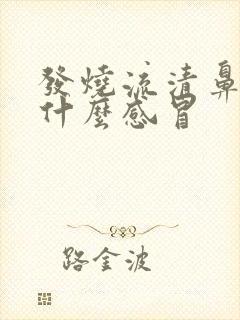 發燒流清鼻
什麼感冒
路金波